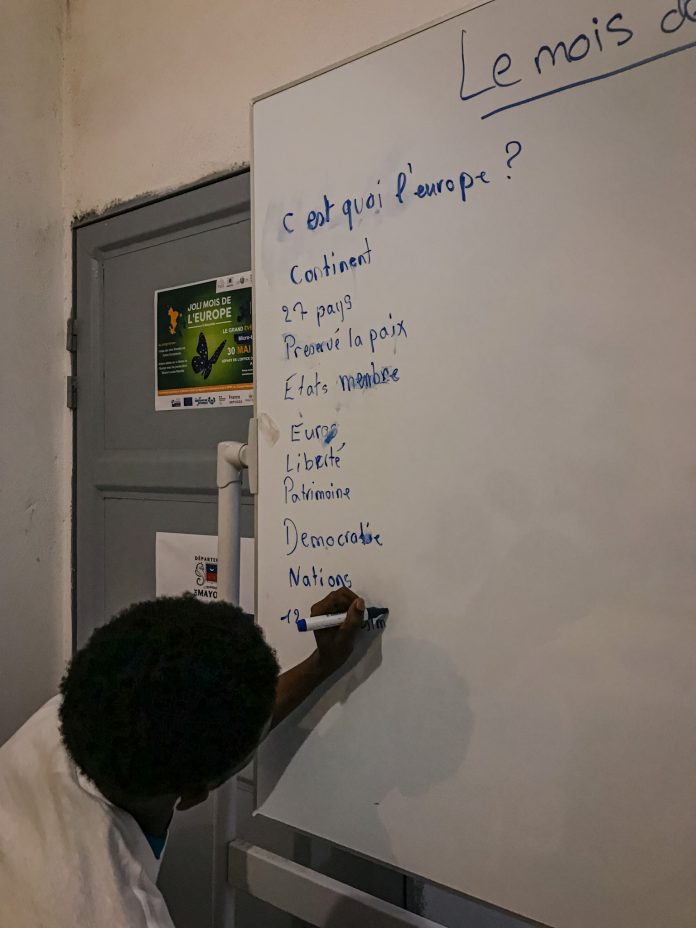 Le mois de
C est quoi l'europe ?
Continent
27 pays
Preservé la paix
Etats membre
Euros
Liberté
Patrimoine
Democratie
Nations
12
JOLI MOIS DE
L'EUROPE
LE GRAND
30 MAI
DÉPARTE
MAYO